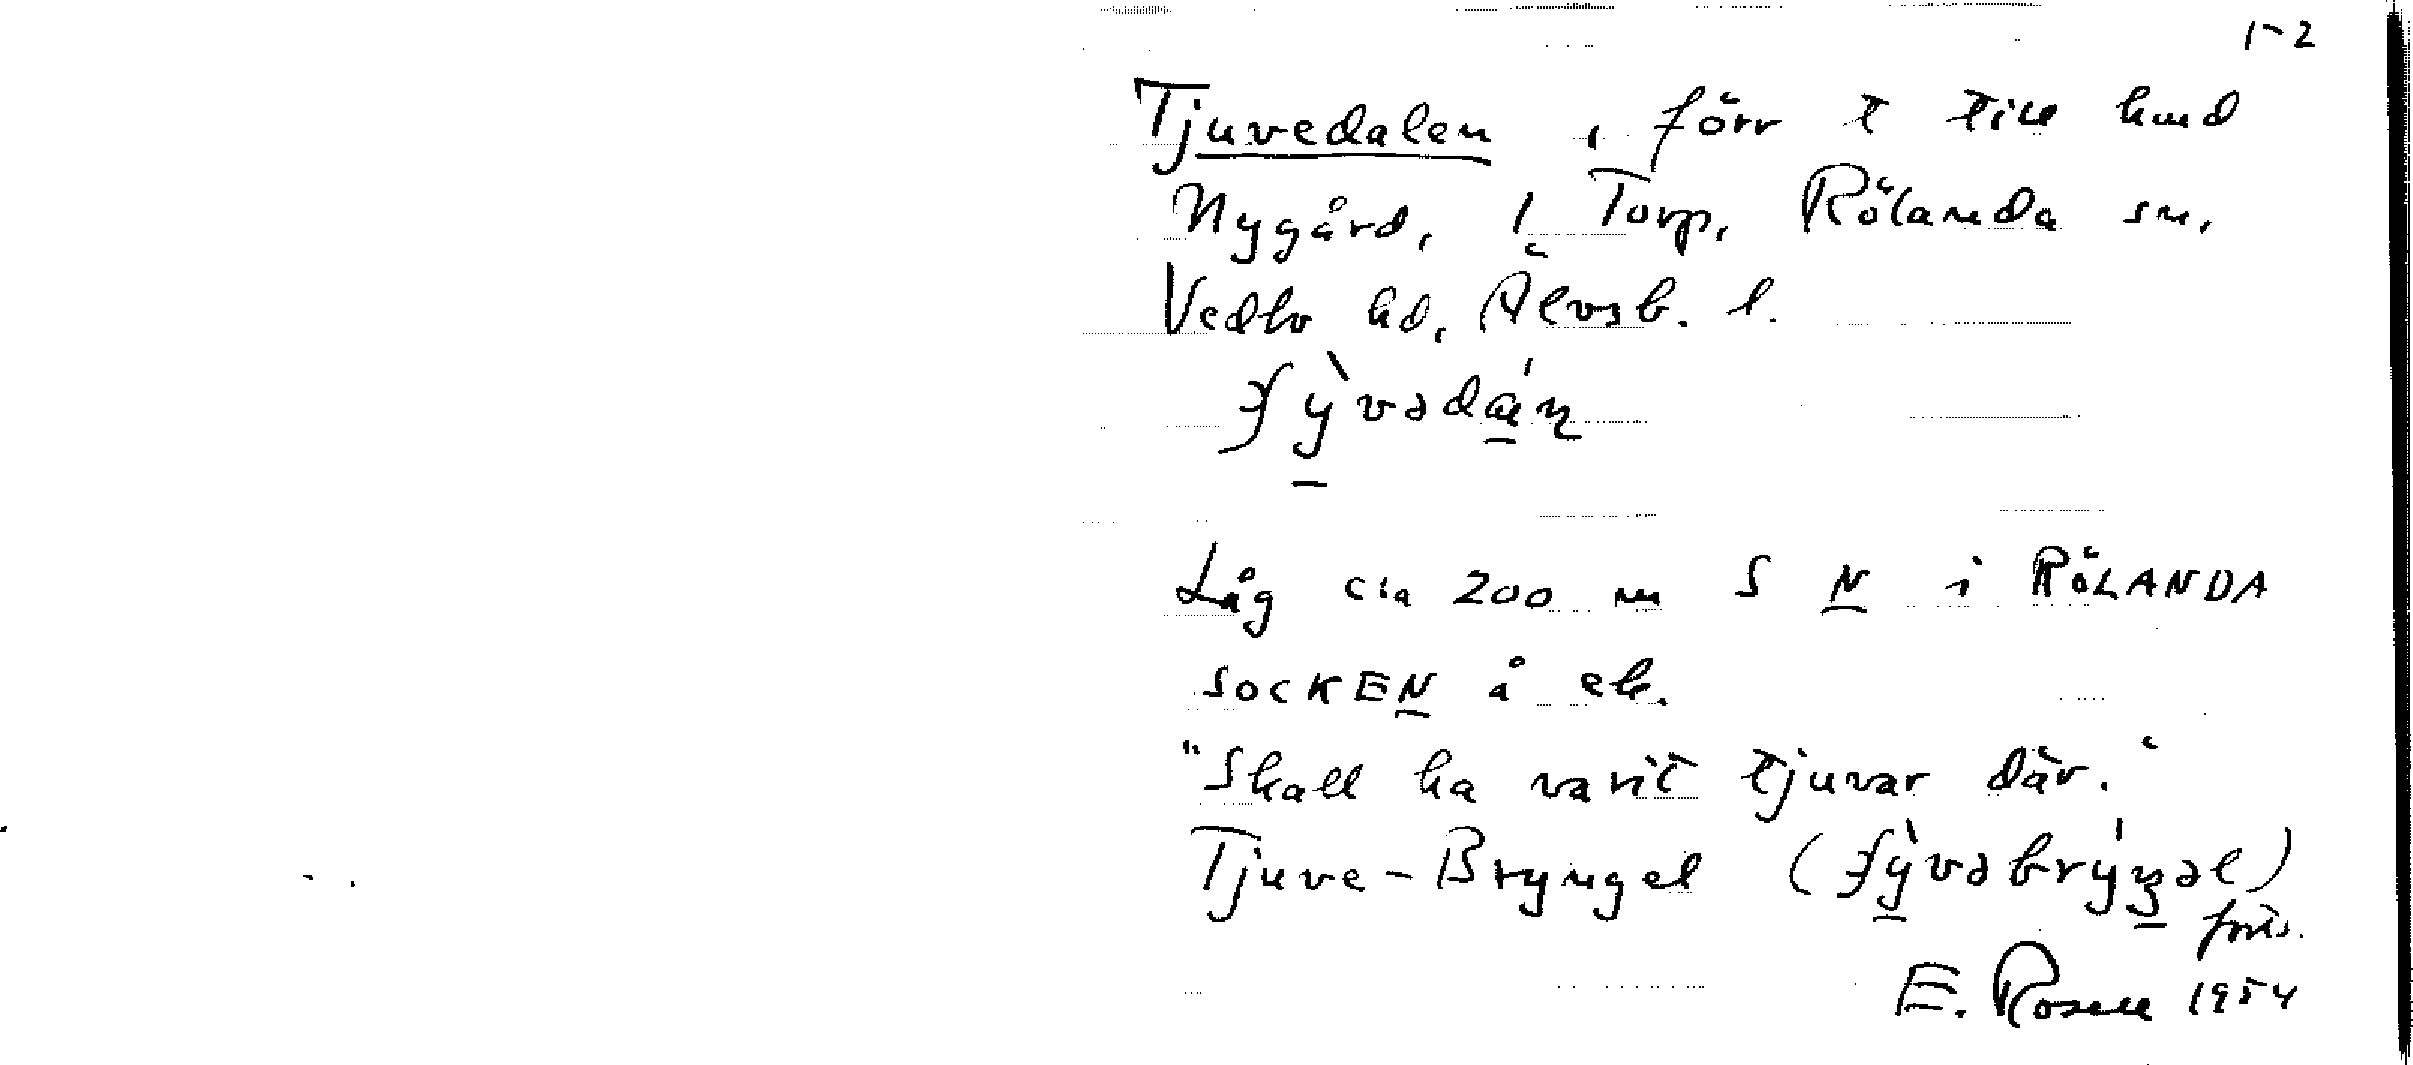 1-2
Tjuvedalen, förr t till hmd
Nygård, 1 Torp, Rölanda sn,
Vedbo hd, Älvsb. l.
Låg c:a 200 m S N i RÖLANDA
SOCKEN å ek.
"Skall ha varit tjuvar där."
Tjuve-Bryngel
forts.
E. Rosell 1954